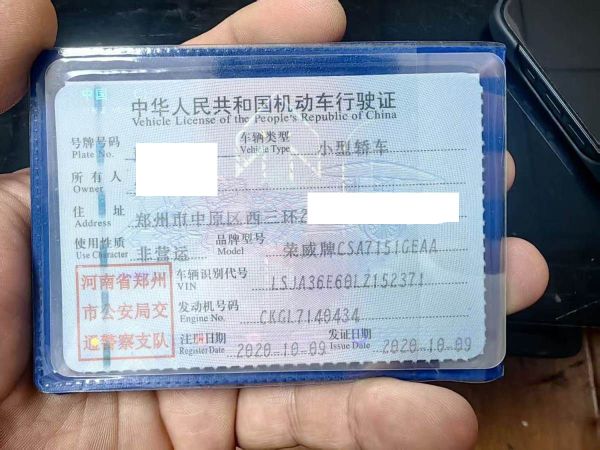 中华人民共和国机动车行驶证
Vehicle License of the People's Republic of China
号牌号码 车辆类型 小型轿车
Plate No. Vehicle Type
所有人
Owner
住址 郑州市中原区西三环
Address
使用性质 非营运 品牌型号 荣威牌CSA7151GEAA
Use Character Model
车辆识别代号 LSJA36E60LZ152371
VIN
发动机号码 CKGL7140434
Engine No.
注册日期 2020-10-09 发证日期 2020-10-09
Register Date Issue Date
河南省郑州
市公安局交
通警察支队